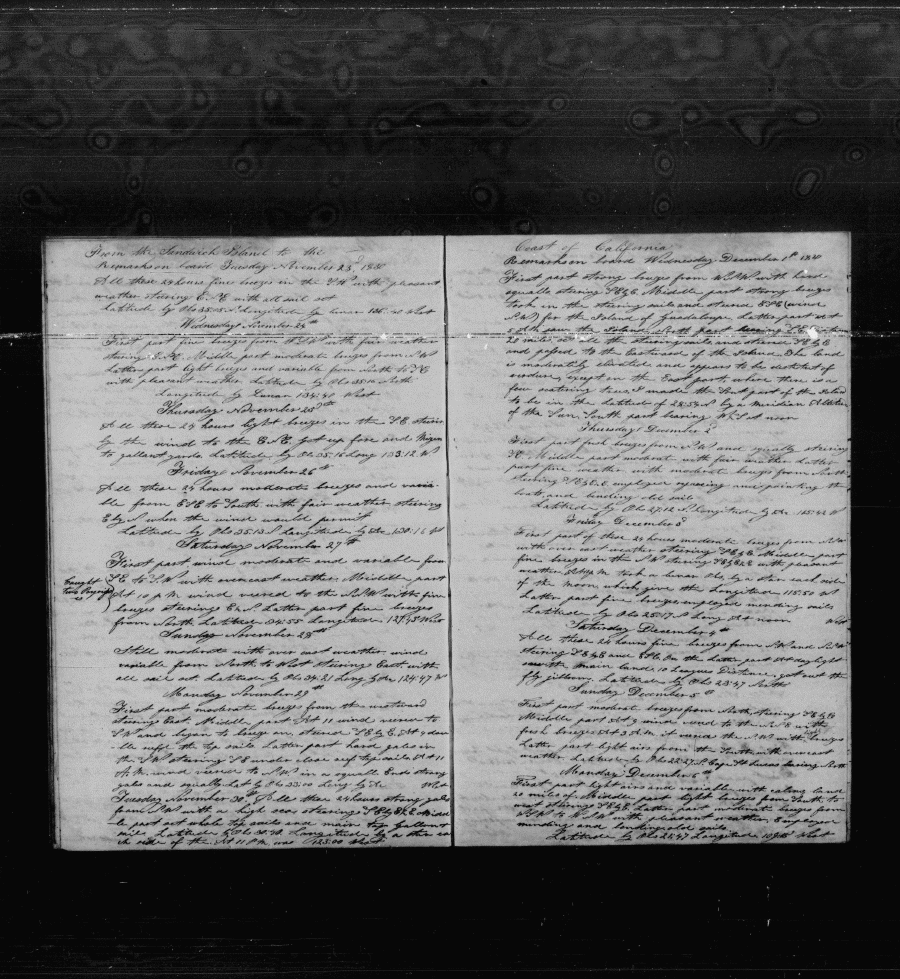 From the Sandwich Island to the
Remarks on board Tuesday November 23d 18
All these 24 hours fine breezes in the SW with pleasant
weather steering E. N.E with all sail set
Latitude by Obs 35.15 N Longitude by Lunar 136. West
Wednesday November 24th
First part fine breezes from with fine weather
steering E.N.E. Middle part moderate breezes from NW
Latter part light breezes and variable from North to NE
with pleasant weather. Latitude by Obs 35.10 North
Longitude by Lunar 134.40 West
Thursday November 25th
All these 24 hours light breezes in the S.E. steering
by the wind to the E.N.E. got up fore and Mizen
to gallant yards. Latitude by Ob 35.16 Long 133.12 W
Friday November 26th
All these 24 hours moderate breezes and varia-
ble from ESE to South with fair weather steering
E by N when the wind would permit
Latitude by Obs 35.13 N Longitude by 130.16 W
Saturday November 27th
First part wind moderate and variable from
SE to SW with overcast weather. Middle part
Caught
two
At 10 P.M. wind veered to the N.N.W with fine
breezes steering E by N. Latter part fine breezes
from North Latitude 34.55 Longitude 127.45 West
Sunday November 28th
Still moderate with over cast weather, wind
variable from North to West steering East with
all sail set. Latitude by Obs 34.21 Long by 124.47 W
Monday November 29th
First part moderate breezes from the westward
steering East. Middle part At 11 wind veered to
SW and began to breeze on, steered SE by E. At 4 dou-
ble reeft the top sails Latter part hard gales in
the SW steering SE under close reef top sails At 11
A.M. wind veered to NW in a squall Ends strong
gales and squally Lat by Obs 33.00 Long by West
Tuesday November 30, All these 24 hours strong gales
from with a high sea steering Middle
part set whole top sails and main top Gallant
sails Latitude by Obs Longitude by a star ea
ch side of the At 11 P.M. was 123.00 West
Coast of California
Remarks on board Wednesday December 1st 18
First part strong breezes from W.N.W with hard
squalls steering SE by E. Middle part strong breezes
took in the steering sails and steered ESE (wind
N.W) for the Island of Guadaloupe. Latter part at
A.M. saw the Island North part bearing
20 miles. set all the steering sails and steered SE by E
and passed to the Eastward of the Island. The land
is moderately elevated and appears to be destitute of
verdure, except on the East part, where there is a
few scattering trees. I make the North part of the Island
to be in the latitude of 28.54 N by a meridian Altitude
of the Sun. South part bearing at noon
Thursday December 2d
First part fresh breezes from NW and squally steering
SE. Middle part moderate with fair weather Latter
part fine weather with moderate breezes from North
steering employed repairing and painting the
boats and bending old sails
Latitude by Obs 27.12 N Longitude by 115.42 W
Friday December 3d
First part of these 24 hours moderate breezes from N.W
with over cast weather steering SE by E. Middle part
fine breezes in the NW steering with pleasant
weather. At P.M. took a lunar Obs, by a star each side
of the moon, which give the Longitude 115.50 W
Latter part fine breezes employed mending sails
Latitude by Obs 25.17 N Long At noon West
Saturday December 4th
All these 24 hours fine breezes from NW and N.N.W
steering SE by E and ESE. In the latter part At daylight
saw the main land 10 leagues Distance, got out the
fly jibboom. Latitude by Obs 23.47 North
Sunday December 5th
First part moderate breezes from North, steering SE by E
Middle part At 9 wind veered to the N.E with
fresh breezes At 3 A.M it veered the N.W with light breezes
Latter part light airs from the South with overcast
weather Latitude by Obs 22.27 N. Cape St Lucas bearing North
Monday December 6th
First part light airs and variable with calms, land
20 miles off. Middle part light breezes from South to
west steering SE by E. Latter part moderate breezes from
to with pleasant weather, Employed
mending and bending old sails
Latitude by Obs Longitude West